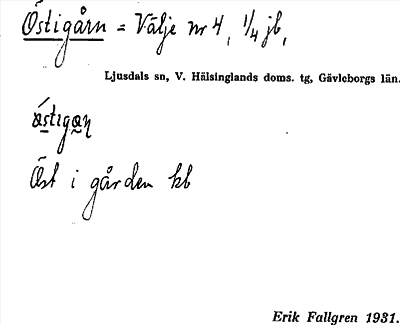 Östigårn = Välje nr 4, 1/4 jb,
Ljusdals sn, V. Hälsinglands doms. tg, Gävleborgs län.
Öst i gården kb
Erik Fallgren 1931.